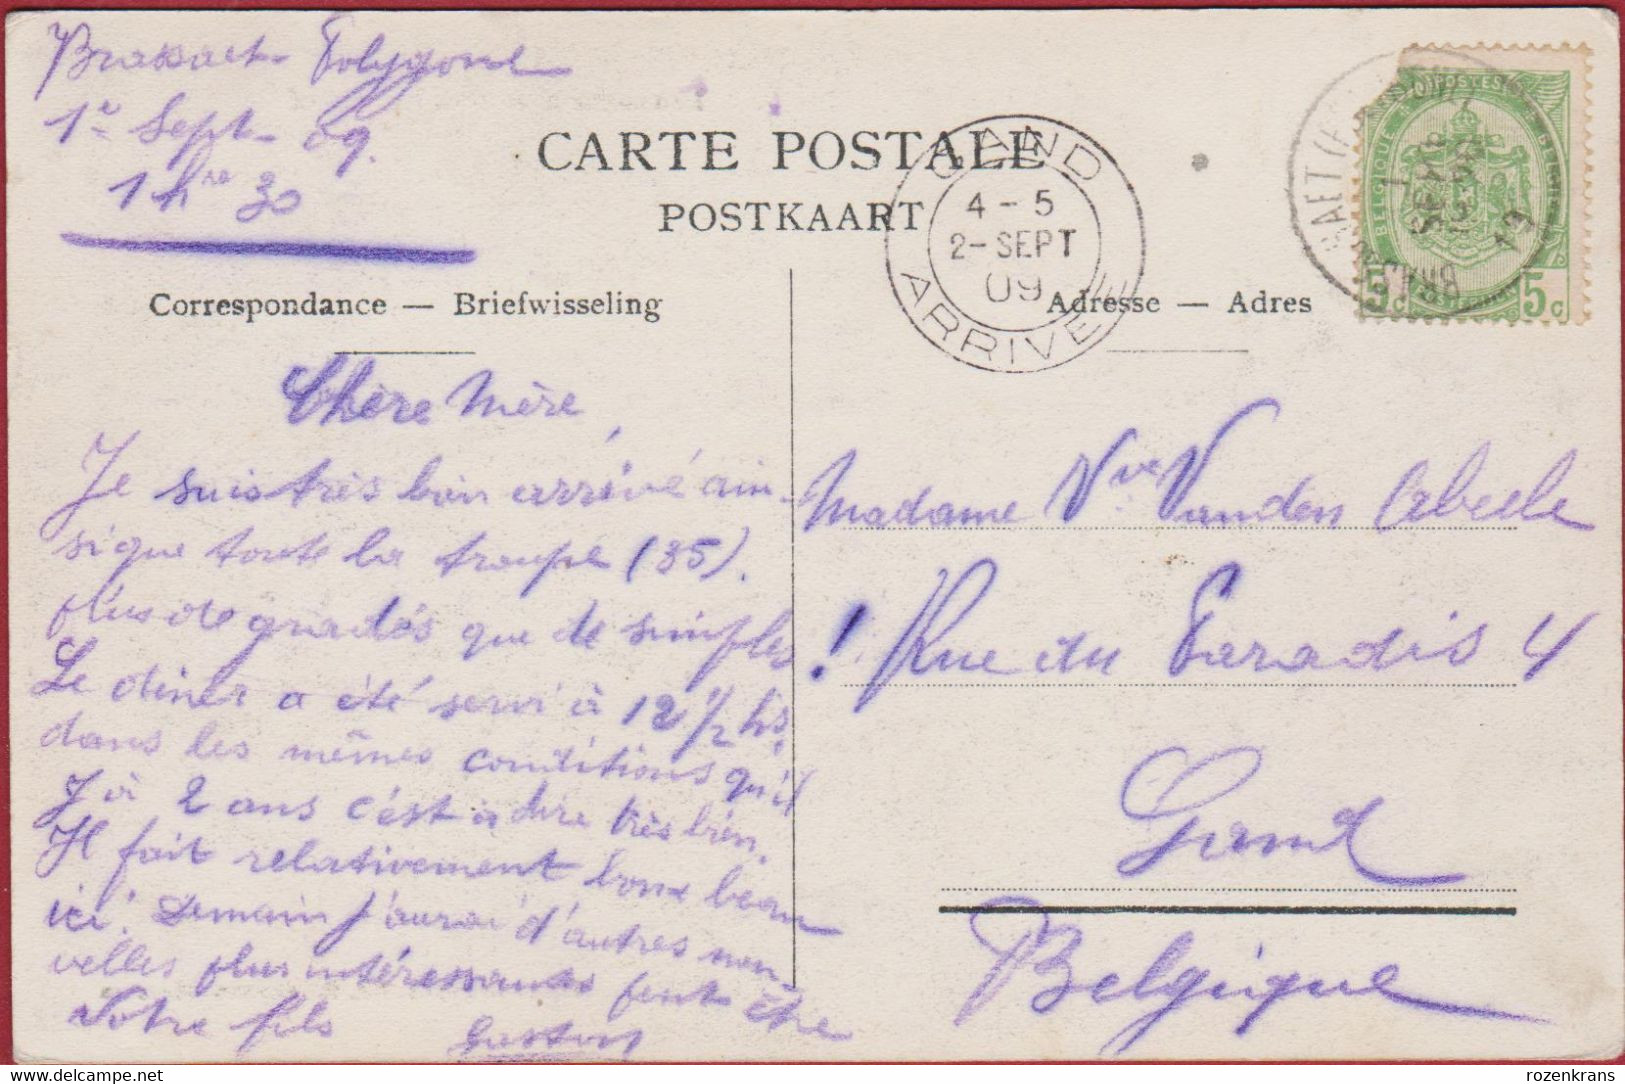 Brasschaet-Polygone
1er Sept- 09.
1 hre 30
CARTE POSTALE
POSTKAART
Correspondance — Briefwisseling
Adresse — Adres
GAND
4-5
2-SEPT
09
ARRIVEE
POSTES
BELGIQUE
5c 5c
Chère Mère,
Je suis très bien arrivé ain-
si que toute la troupe (35).
plus de gradés que de simples
Le diner a été servi à 12 1/2 hs.
dans les mêmes conditions qu'il
y a 2 ans c'est à dire très bien.
Il fait relativement bon beau
ici. Demain j'aurai d'autres nou
velles plus intéressantes peut être
Votre fils Gaston
Madame Vve Vanden Abeele
! Rue du Paradis 4
Gand
Belgique
rozenkrans